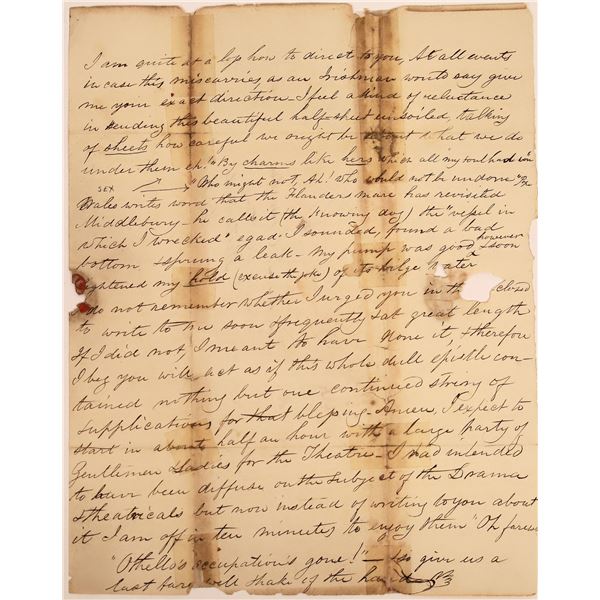 I am quite at a loss how to direct to you, At all events
in case this miscarries as an Irishman would say give
me your exact direction - I feel a kind of reluctance
in sending this beautiful half-sheet unsoiled, talking
of sheets how careful we ought to be what we do
under them eh! "By charms like hers which all my soul had
SEX
"Who might not, Ah! who would not be undone"
Wales writes word that the Flanders mare has revisited
Middlebury - he calls it (the knowing dog) the "vessel in
which I wrecked" egad - I sounded, found a bad
bottom & sprung a leak - My pump was good however & soon
lightened my hold (excuse the joke) of its bulge water
do not remember whether I urged you in the closed
to write to me soon & frequently & at great length
If I did not I meant to have done it, & therefore
I beg you will act as if this whole dull epistle con-
tained nothing but one continued string of
supplications for that blessing - Amen, I expect to
start in about half an hour with a large party of
Gentlemen & Ladies for the Theatre - I had intended
to have been diffuse on the subject of the Drama
& theatricals but now instead of writing to you about
it I am off in ten minutes to enjoy them "Oh farewe
"Othello's occupation's gone!" - & so give us a
last farewell shake of the hand